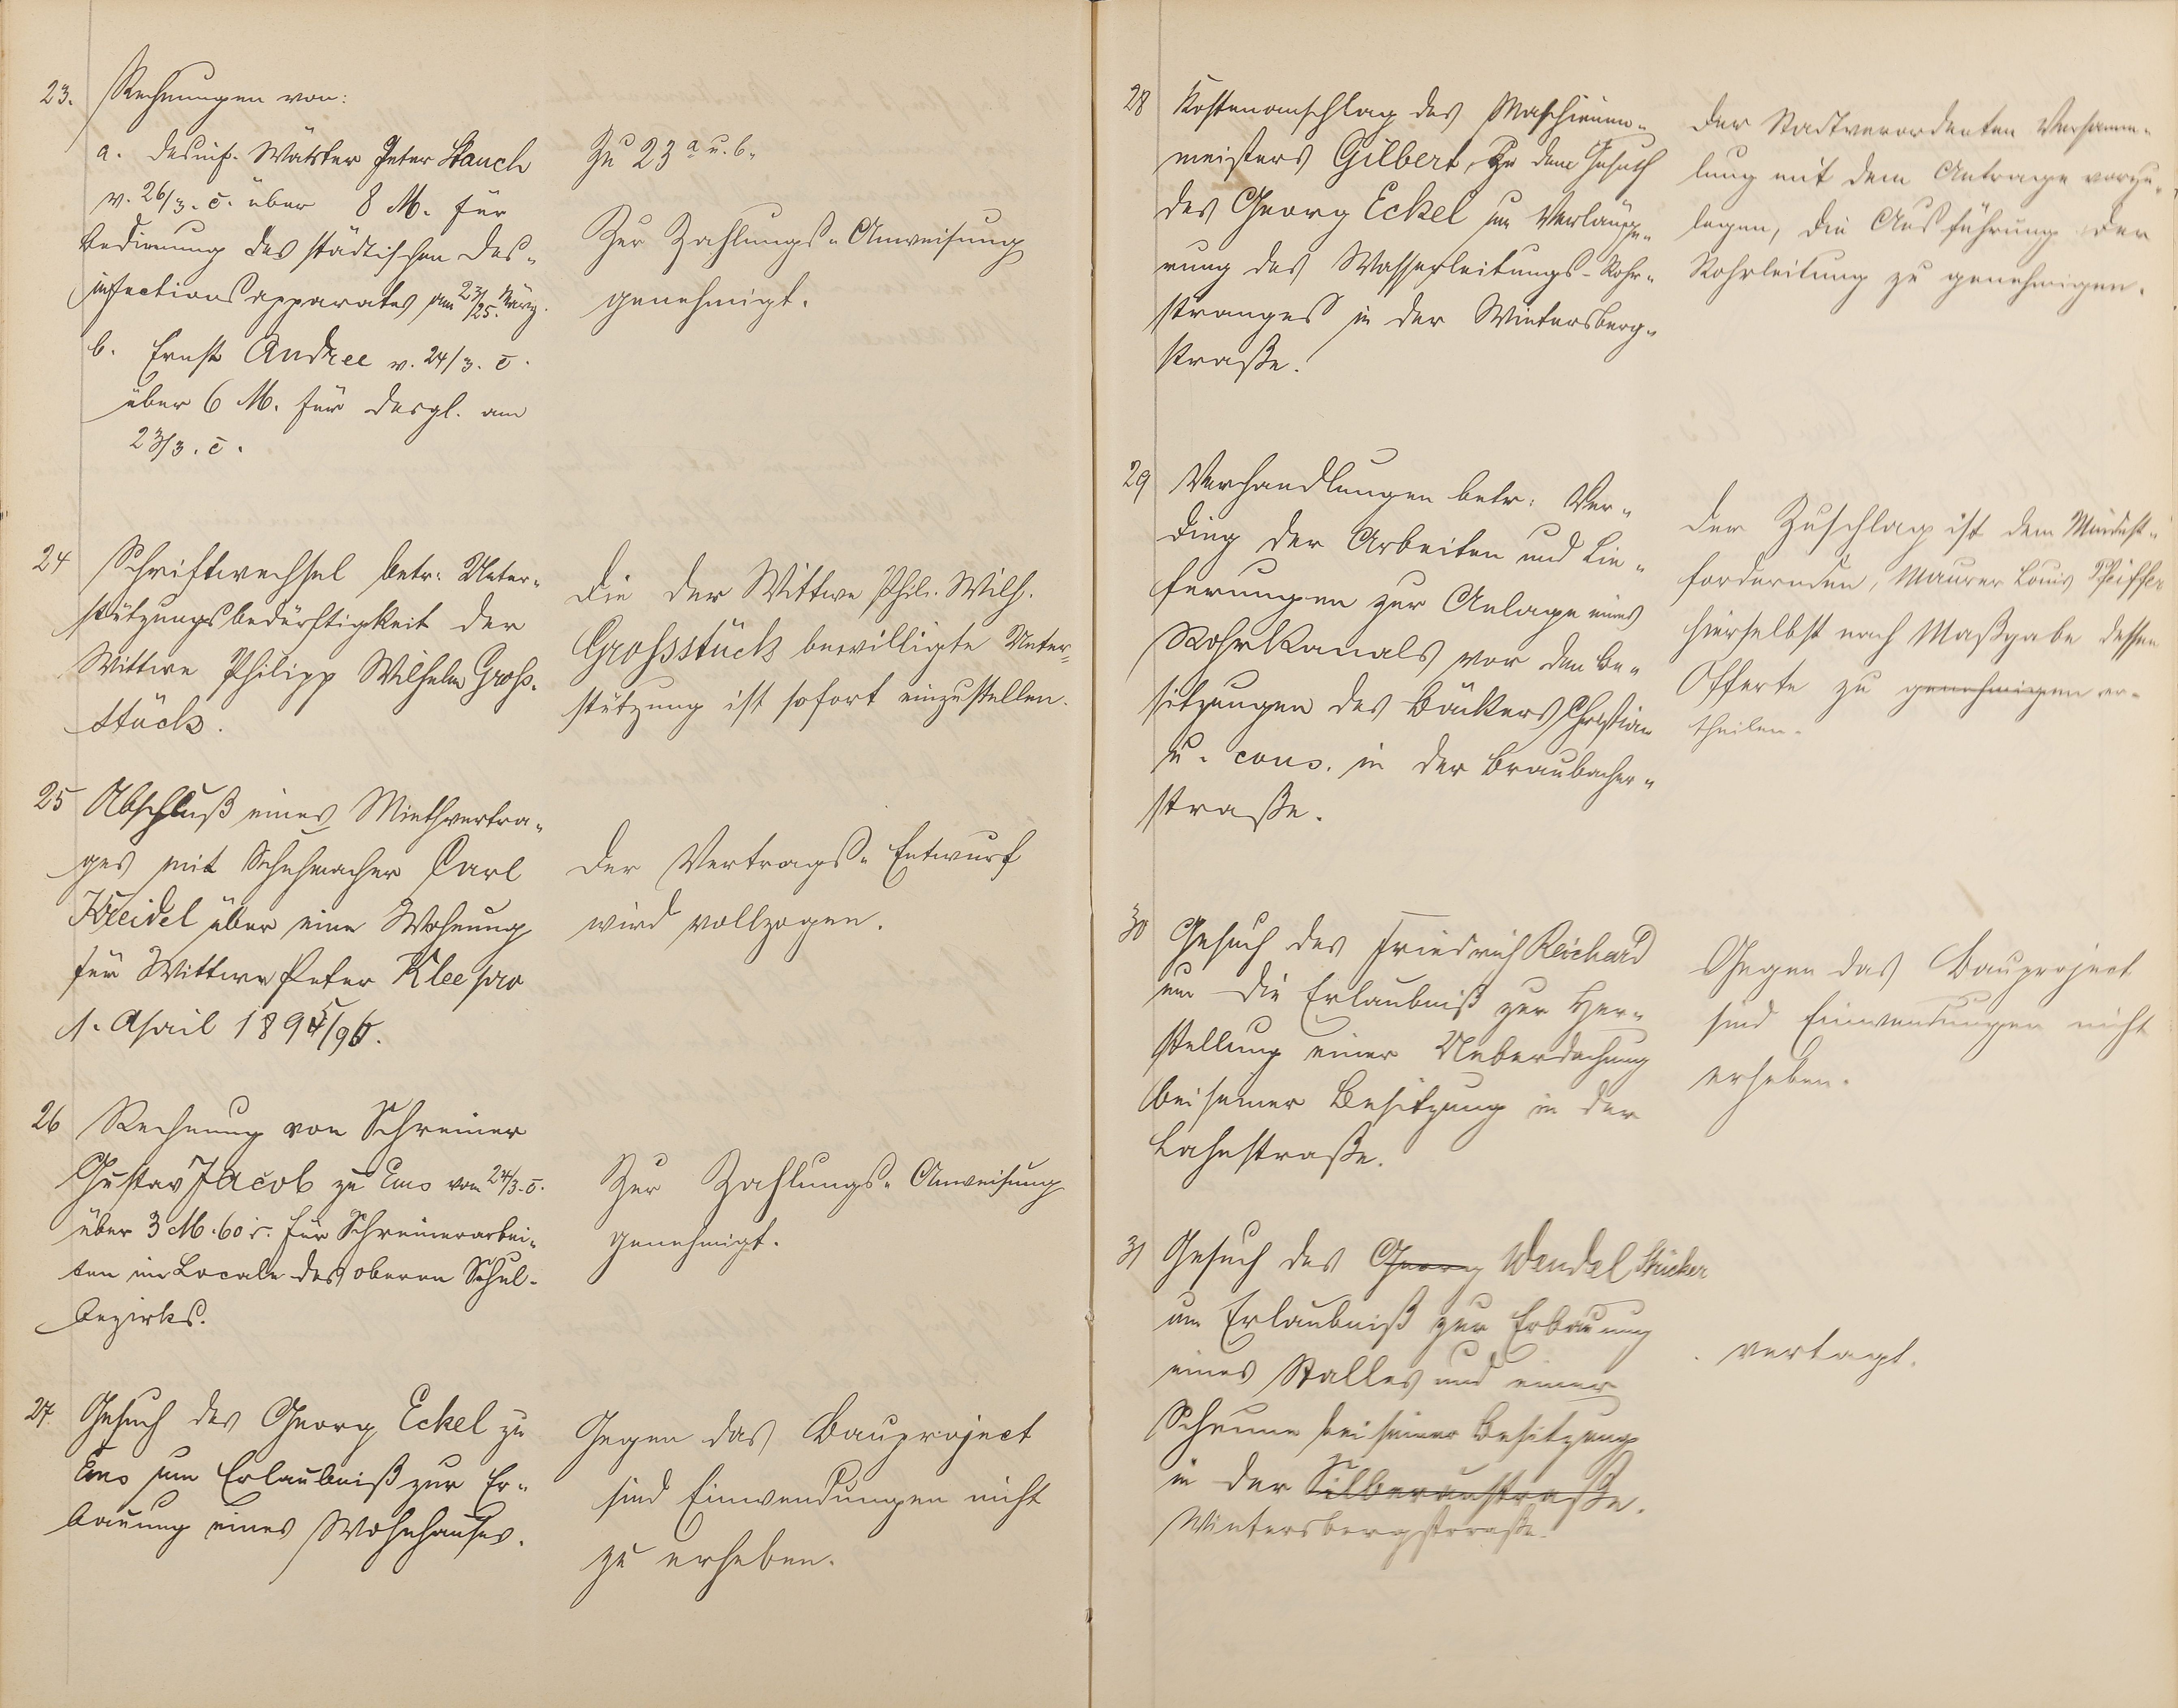 23. Rechnungen von:
a. Desinf. Wärter Peter Stauch
v. 26/3. c. über 8 M. für
Bedienung des städtischen Des-
infectionsapparates am 23/25. März.
b. Ernst Andree v. 24/3. c.
über 6 M. für desgl. am
23/3. c.
Zu 23 a u. b.
Zur Zahlungs-Anweisung
genehmigt.
24 Schriftwechsel betr. Unter-
stützungsbedürftigkeit der
Wittwe Philipp Wilhelm Gross-
stück.
Die der Wittwe Phil. Wilh.
Grossstück bewilligte Unter-
stützung ist sofort einzustellen.
25 Abschluß eines Miethvertra-
ges mit Schuhmacher Carl
Kreidel über eine Wohnung
für Wittwe Peter Klee pro
1. April 1895/96.
Der Vertrags-Entwurf
wird vollzogen.
26 Rechnung von Schreiner
Gustav Jacob zu Ems vom 24/3. c.
über 3 M. 60 für Schreinerarbei-
ten im Locale des oberen Schul-
bezirks.
Zur Zahlungs-Anweisung
genehmigt.
27. Gesuch des Georg Eckel zu
Ems um Erlaubniß zur Er-
bauung eines Wohnhauses.
Gegen das Bauproject
sind Einwendungen nicht
zu erheben.
28 Kostenanschlag des Maschienen-
meisters Gilbert, zu dem Gesuch
des Georg Eckel um Verlänge-
rung des Wasserleitungs-Rohr-
stranges in der Wintersberg-
straße.
Der Stadtverordneten Versamm-
lung mit dem Antrage vorzu-
legen, die Ausführung der
Rohrleitung zu genehmigen.
29 Verhandlungen betr. Ver-
ding der Arbeiten und Lie-
ferungen zur Anlage eines
Rohrkanals vor den Be-
sitzungen des Bäckers Christian
u. cons. in der Braubacher-
straße.
Der Zuschlag ist dem Mindest-
fordernden, Maurer Louis Pfeiffer
hierselbst nach Maßgabe dessen
Offerte zu genehmigen er-
theilen.
30 Gesuch des Friedrich Reichard
um die Erlaubniß zur Her-
stellung einer Ueberdachung
bei seiner Besitzung in der
Lahnstraße.
Gegen das Bauproject
sind Einwendungen nicht
erheben.
31 Gesuch des Georg Wendel Stricker
um Erlaubniß zur Erbauung
eines Stalles und einer
Scheune bei seiner Besitzung
in der Silberaustraße.
Wintersbergstraße.
vertagt.